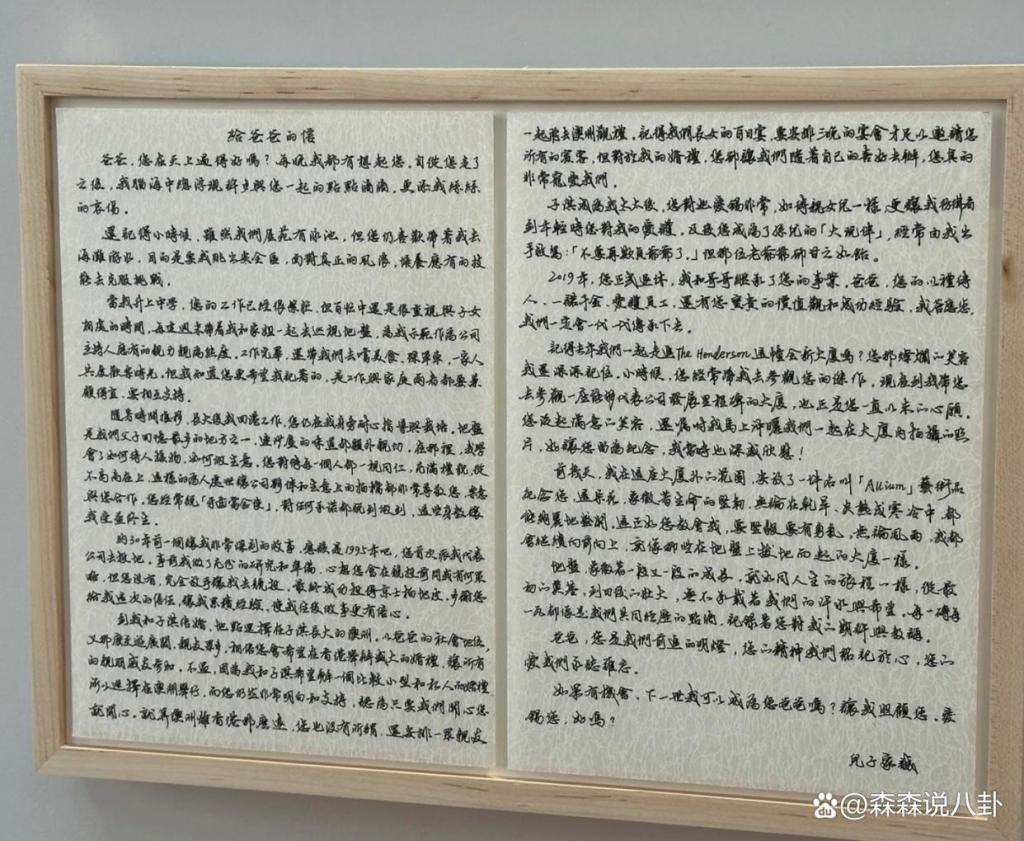 給爸爸的信
爸爸,您在天上過得好嗎?每晚我都有想起您,自從您走了
之後,我腦海中總浮現許多與您一起的點點滴滴,更添我絲絲
的哀傷。
還記得小時候,雖然我們屋苑有泳池,但您仍喜歡帶着我去
海灘游水,目的是要我跳出安全區,面對真正的風浪,培養應有的技
能去克服挑戰。
當我升上中學,您的工作已經很繁忙,但百忙中還是很重視與子女
相處的時間,每逢週末帶着我和家姐一起去巡視地盤,為我示範作為公司
主持人應有的親力親為態度。工作完畢,還帶我們去嘗美食、踩單車,一家人
共度歡樂時光,但我知道您更希望我記着的,是工作與家庭兩者都要兼
顧得宜,要相互支持。
隨着時間推移,長大後我回港工作,您仍在我身旁耐心指導與栽培,地盤
是我們父子回憶最多的地方之一,連沙塵的味道都額外親切。在那裡,我學
會了如何待人接物,如何做生意,您對待每一個人都一視同仁,充滿禮貌,從
不高高在上,這樣的為人處世讓公司夥伴和生意上的拍擋都非常尊敬您,樂意
與您合作,您經常說「牙齒當金使」,對任何承諾都說到做到,這些身教讓
我受益終生。
約30年前一個讓我非常深刻的故事,應該是1995年吧,您首次派我代表
公司去投地,事前我做了充份的研究和準備,心想您會在競投前問我有何策
略,但您沒有,完全放手讓我去競投,最終成功投得京士柏地皮,多謝您
給我這次的信任,讓我累積經驗,使我往後做事更有信心。
到我和子淇結婚,地點選擇在子淇長大的澳洲,以爸爸的社會地位,
又那麼交遊廣闊,親友眾多,相信您會希望在香港舉辦盛大的婚禮,讓所有
的親朋戚友參加,不過,因為我和子淇希望辦一個比較小型和私人的婚禮
所以選擇在澳洲舉行,而您仍然非常明白和支持,認為只要我們開心您
就開心。就算澳洲離香港那麼遠,您也沒有所謂,還安排一眾親友
一起飛去澳洲觀禮,記得我們長女的百日宴,要安排三晚的宴會才足以邀請您
所有的賓客,但對於我的婚禮,您卻讓我們隨着自己的喜好去辦,您真的
非常寵愛我們。
子淇成為我太太後,您對她愛錫非常,如待親女兒一樣,更讓我彷彿看
到年輕時您對我的愛護,及後您成為了孫兒的「大玩伴」,經常由我出
手救駕:「不要再欺負爺爺了。」但那位老爺爺卻甘之如飴。
2019年,您正式退休,我和哥哥繼承了您的事業,爸爸,您的以禮待
人、一諾千金、愛護員工,還有您寶貴的價值觀和成功經驗,我答應您,
我們一定會一代一代傳承下去。
記得去年我們一起走過The Henderson這幢全新大廈嗎?您那燦爛的笑容
我還深深記住。小時候,您經常帶我去參觀您的傑作,現在到我帶您
去參觀一座能夠代表公司發展里程碑的大廈,也正是您一直以來的心願。
您泛起滿意的笑容,還囑咐我馬上沖曬我們一起在大廈內拍攝的照
片,好讓您留為紀念,我當時也深感欣慰!
前幾天,我在這座大廈外的花園,安放了一件名叫「Allium」藝術品
紀念您,這朵花,象徵着生命的堅韌,無論在乾旱、炎熱或寒冷中,都
能絢麗地盛開,這正如您教會我,要堅毅要有勇氣,無論風雨,我都
會繼續向前向上,就像那些在地盤上拔地而起的大廈一樣。
地盤,象徵着一段又一段的成長,就如同人生的旅程一樣,從最
初的奠基,到日後的壯大,無不承載着我們的汗水與希望,每一磚每
一瓦都像是我們共同經歷的點滴,記錄着您對我的期盼與教誨。
爸爸,您是我們前進的明燈,您的精神我們銘記於心,您的
愛我們永遠難忘。
如果有機會,下一世我可以成為您爸爸嗎?讓我照顧您,愛
錫您,好嗎?
兒子家誠
@森森说八卦